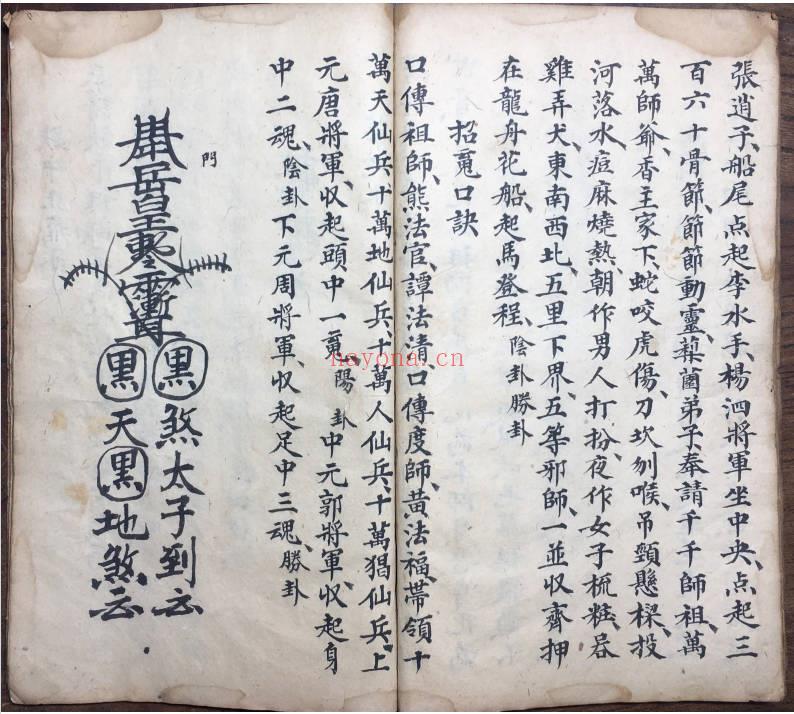 張逍子、船尾点起李水手、楊泗將軍坐中央、点起三
百六十骨節、節節動靈、藥菌弟子、奉請千千師祖、萬
萬師爺、香主家下、蛇咬虎傷、刀坎刎喉、吊頸懸樑、投
河落水、痘麻燒熱、朝作男人打扮、夜作女子梳粧、呑
雞弄犬、東南西北、五里下界、五等邪師、一並収齊押
在龍舟花船、起馬登程、陰卦勝卦
招䰟口訣
口傳祖師、熊法官、譚法清口傳度師、黃法福、帶領十
萬天仙兵、十萬地仙兵、十萬人仙兵、十萬猖仙兵、上
元唐將軍、収起頭中一䰟、陽卦中元郭將軍、収起身
中二魂、陰卦下元周將軍、収起足中三魂、勝卦
門
黑煞太子到云
黑天黑地煞云
nayona.cn